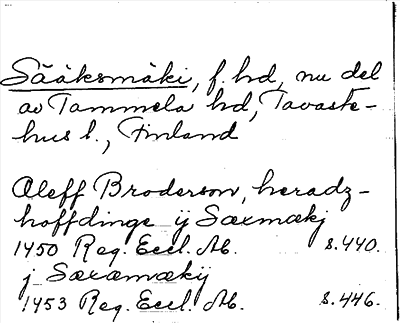 Sääksmäki, f. hd, nu del
av Tammela hd, Tavaste-
hus l., Finland
Oleff Broderson, heradz-
hoffdinge ij Sæxmækj
1450 Reg. Eccl. Ab. s. 440.
j Sæxæmækij
1453 Reg. Eccl. Ab. s. 446.